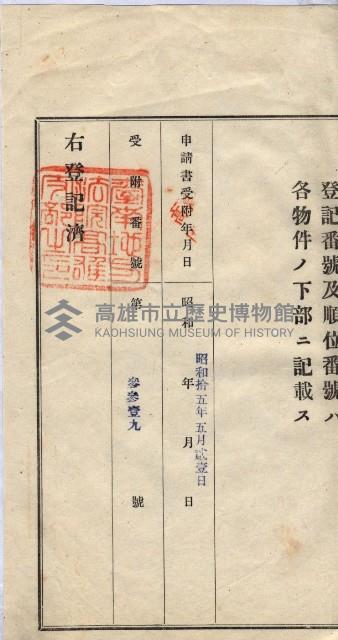 登記番號及順位番號ハ
各物件ノ下部ニ記載ス
申請書受附年月日
昭和　年　月　日
昭和拾五年五月貳壹日
受附番號
第　號
參參壹九
右登記濟
高雄市立歷史博物館
KAOHSIUNG MUSEUM OF HISTORY